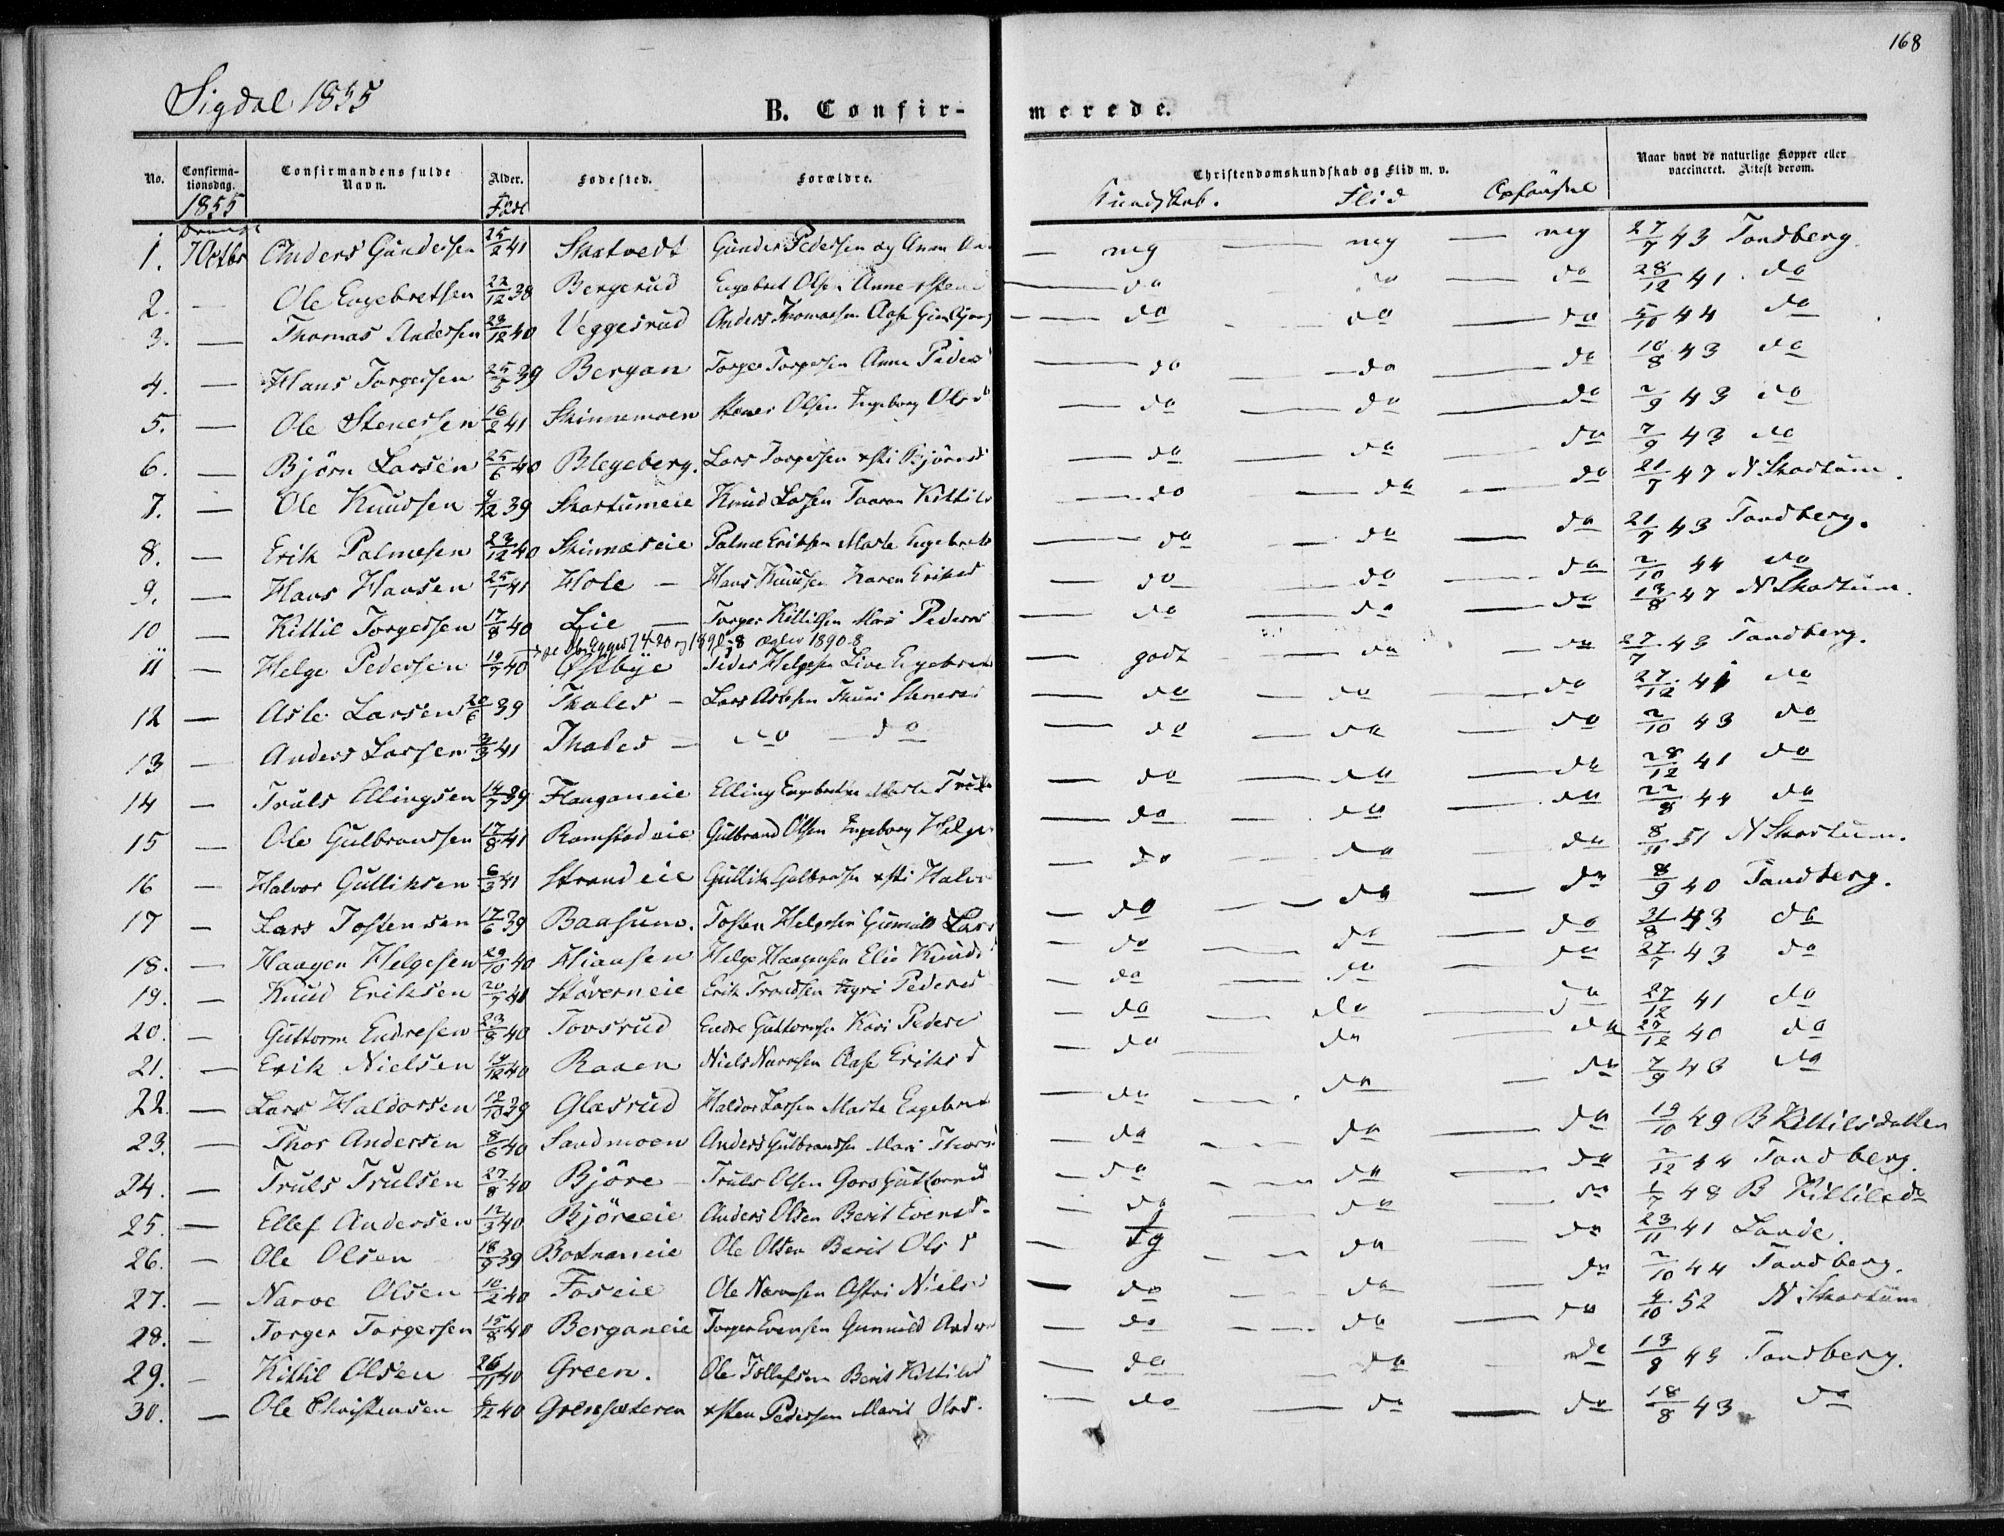 168
Sigdal 1855
B. Confir- merede.
No. Confirma-tionsdag. Confirmandens fulde Navn. Alder. Fødested. Forældre. Christendomskundskab og Flid m. v. Naar havt de naturlige Kopper eller vaccineret. Attest derom.
1855 Født Kundskab. Flid Opførsel
1. 7 Octbr Anders Gundersen 25/2 41 Skatvedt Gunder Pedersen og Anne — mg — mg — mg 27/7 43 Tandberg.
2. — Ole Engebretsen 22/12 38 Bergerud Engebret Olsen Anne — do do — do 28/12 41. do
3. — Thomas Andersen 28/12 40 Veggesrud Anders Thomassen Aase — do do — do 5/10 44 do
4. — Hans Torgersen 25/5 39 Bergan Torger Torgersen Anne Peders — do — do — do 10/8 43 do
5. — Ole Stenersen 16/2 41 Skinnemoen Stener Olsen Ingeborg Olsd — do — do — do 2/9 43 do
6. — Björn Larsen 25/6 40 Blegeberg. Lars Torgersen Björnsd — do — do — do 7/9 43 do
7. — Ole Knudsen 9/12 39 Skartumeie Knud Larsen Taaran Kittils — do — do — do 21/7 47 N Skartum.
8. — Erik Palmesen 23/12 40 Skinnæseie Palme Eriksen Marte Engebrets — do — do — do 21/7 43 Tandberg.
9. — Hans Hansen 25/1 41 Hole — Hans Knudsen Karen Eriksd — do — do — do 2/10 44 do
10 — Kittil Torgersen 17/8 40 Lie — Torger Kittilsen Mari Pedersd — do — do — do 13/8 47 N Skartum.
11 — Helge Pedersen 10/7 40 Østbye Peder Helgesen Live Engebrets — godt — do — do 27/7 43 Tandberg.
12 — Asle Larsen 20/6 39 Thales — Lars Aslesen Thuri Stenersd — do — do — do 27/12 41 do
13 — Anders Larsen 3/3 41 Thales — do — do — do — do — do 2/10 43 do
14 — Truls Ellingsen 14/7 39 Hauganeie Elling Engebretsen Marte — do — do — do 28/12 41 do
15 — Ole Gulbrandsen 17/8 41 Ramstadeie Gulbrand Olsen Ingeborg Helge — do — do — do 22/8 44 do
16 — Halvor Gulliksen 6/3 41 Strandeie Gullik Gulbransen Halv — do — do — do 8/11 51 N Skartum.
17 — Lars Tostensen 17/6 39 Baasum. Tosten Helgesen Gunnild Lars — do — do — do 8/9 40 Tandberg.
18. — Haagen Helgesen 29/10 40 Hiaasen Helge Haagensen Elie Knuds — do — do — do 31/8 43 do
19. — Knud Eriksen 20/7 41 Støverneie Erik Trondsen Sigri Pedersd — do — do — do 27/7 43 do
20. — Guttorm Endresen 23/8 40 Tovsrud Endre Guttormsen Kari Peders — do do — do 27/12 41 do
21. — Erik Nielsen 14/12 40 Raaen Niels Narvesen Aase Eriksd — do do — do 27/12 40 do
22. — Lars Haldorsen 12/10 39 Glæsrud Haldor Larsen Marte Engebret — do — do — do 7/9 43 do
23. — Thor Andersen 8/6 40 Sandmoen Anders Gulbrandsen Mari Thorsd — do — do — do 19/10 49 B Kittilsdatter
24. — Truls Trulsen 27/8 40 Björe — Truls Olsen Goro Guttormsd — do — do — do 2/12 44 Tandberg.
25. — Ellef Andersen 12/3 40 Björeeie Anders Olsen Berit Evensd. — do — do — do 1/7 48 B Kittilsd
26. — Ole Olsen 18/9 39 Botnaneie Ole Olsen Berit Olsd — tg — do — do 23/11 41 Lande.
27. — Narve Olsen 10/2 40 Foseie Ole Narvesen Astri Niels — do — do — do 2/10 44 Tandberg.
28. — Torger Torgersen 15/8 40 Berganeie Torger Evensen Gunnild Anders — do — do — do 4/10 52 N Skartum
29. — Kittil Olsen 26/11 40 Green. Ole Tollefsen Berit Kittilsd — do — do — do 13/8 43 Tandberg.
30. — Ole Christensen 6/12 40 Grensæteren Pedersen Marit Olsd. — do — do — do 18/8 43 do